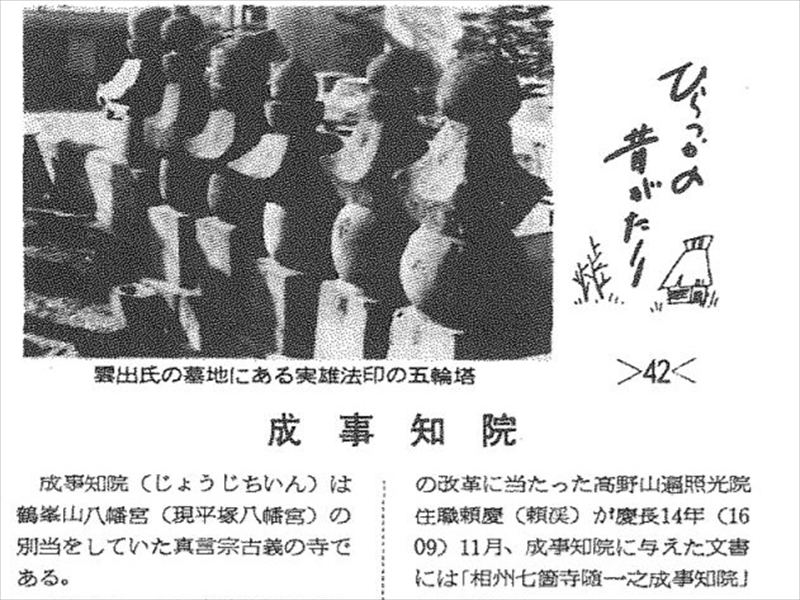 ひらつかの
昔がたり
雲出氏の墓地にある実雄法印の五輪塔
>42<
成事知院
成事知院(じょうじちいん)は
鶴峯山八幡宮(現平塚八幡宮)の
別当をしていた真言宗古義の寺で
ある。
の改革に当たった高野山遍照光院
住職頼慶(頼渓)が慶長14年(16
09)11月、成事知院に与えた文書
には「相州七箇寺随一之成事知院」